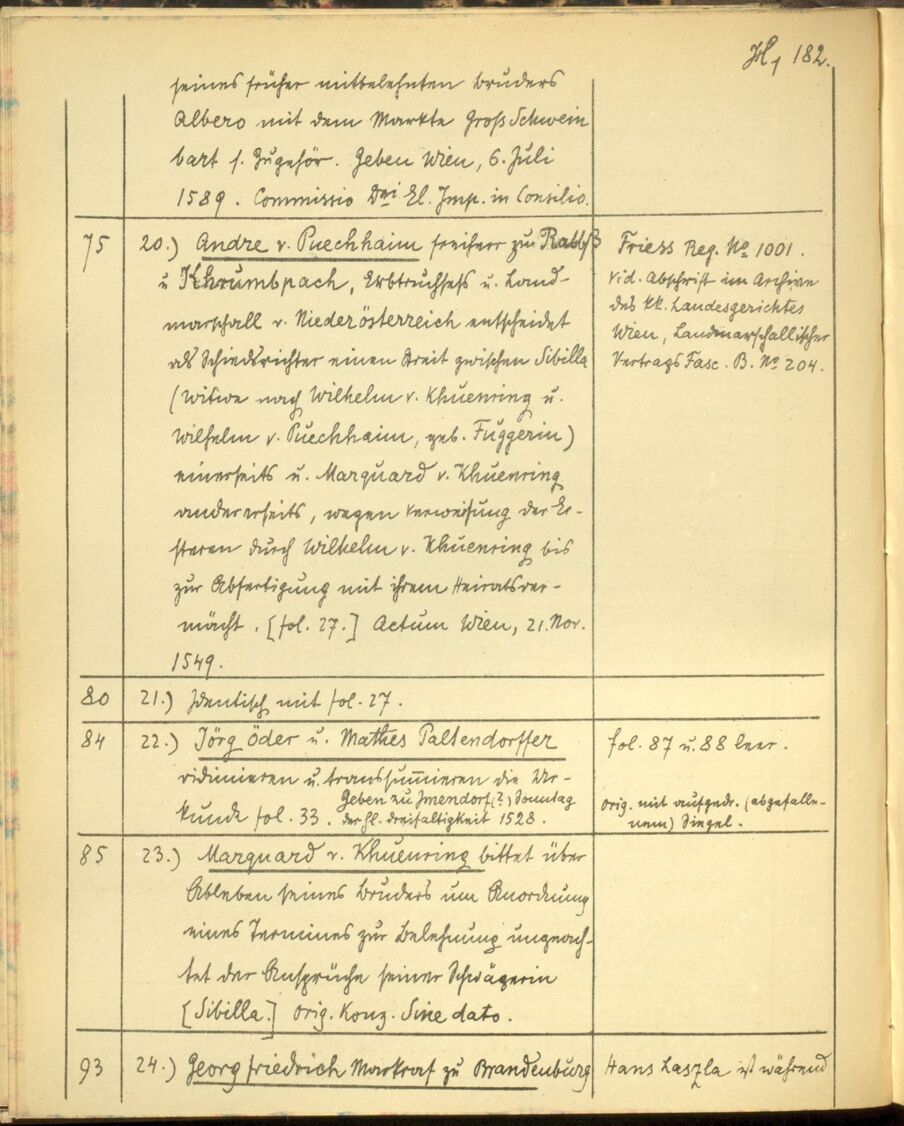 182.
seines früher mitbelehnten Bruders
Albero mit dem Markte Groß Schwein
bart s. Zugehör. Geben Wien, 6. Juli
1589. Commissio Dni El. Imp. in Consilio.
75 20.) Andre v. Puechhaim freiherr zu Rabbß
u Khrumbpach, Erbtruchseß u. Land-
marschall v. Niederösterreich entscheidet
als Schiedsrichter einen Streit zwischen Sibilla
(Witwe nach Wilhelm v. Khuenring u.
Wilhelm v. Puechhaim, geb. Fuggerin)
einerseits u. Marquard v. Khuenring
andererseits, wegen Verweisung der Er-
steren durch Wilhelm v. Khuenring bis
zur Abfertigung mit ihrem Heiratsver-
mächt. [fol. 27.] Actum Wien, 21. Nov.
1549.
Friess Reg. No 1001.
vid. Abschrift im Archive
des kk. Landesgerichtes
Wien, Landmarschallischer
Vertrags Fasc. B. No 204.
80 21.) Identisch mit fol. 27.
84 22.) Jörg Öder u. Mathes Paltendorffer
vidimieren u. transsumieren die Ur-
kunde fol. 33. Geben zu Imendorf (?) Sonntag
der hl. Dreifaltigkeit 1528.
fol. 87 u. 88 leer.
orig. mit aufgedr. (abgefalle-
nem) Siegel.
85 23.) Marquard v. Khuenring bittet über
Ableben seines Bruders um Anordnung
eines Termines zur Belehnung ungeach-
tet der Ansprüche seiner Schwägerin
[Sibilla.] orig. Konz. Sine dato.
93 24.) Georg friedrich Markraf zu Brandenburg
Hans Laszla ist während